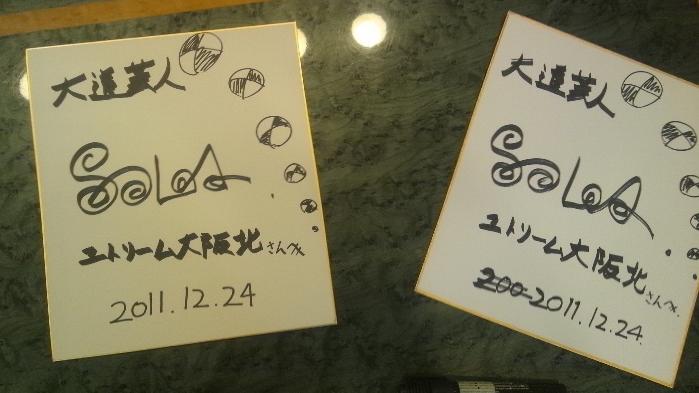 大道芸人
SOLOA
ユトリーム大阪北さんへ
2011.12.24
大道芸人
SOLOA
ユトリーム大阪北さんへ
2011.12.24